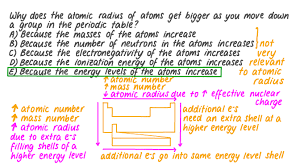 Why does the atomic radius of atoms get bigger as you move down
a group in the periodic table?
A) Because the masses of the atoms increase
B) Because the number of neutrons in the atoms increases
C) Because the electronegativity of the atoms increases
D) Because the ionization energy of the atoms increases
E) Because the energy levels of the atoms increase
not
very
relevant
to atomic
radius
↑ atomic number
↑ mass number
↓ atomic radius due to ↑ effective nuclear
charge
↑ atomic number
↑ mass number
↑ atomic radius
due to extra e⁻s
filling shells of a
higher energy level
additional e⁻s
need an extra shell at a
higher energy level
additional e⁻s go into same energy level shell